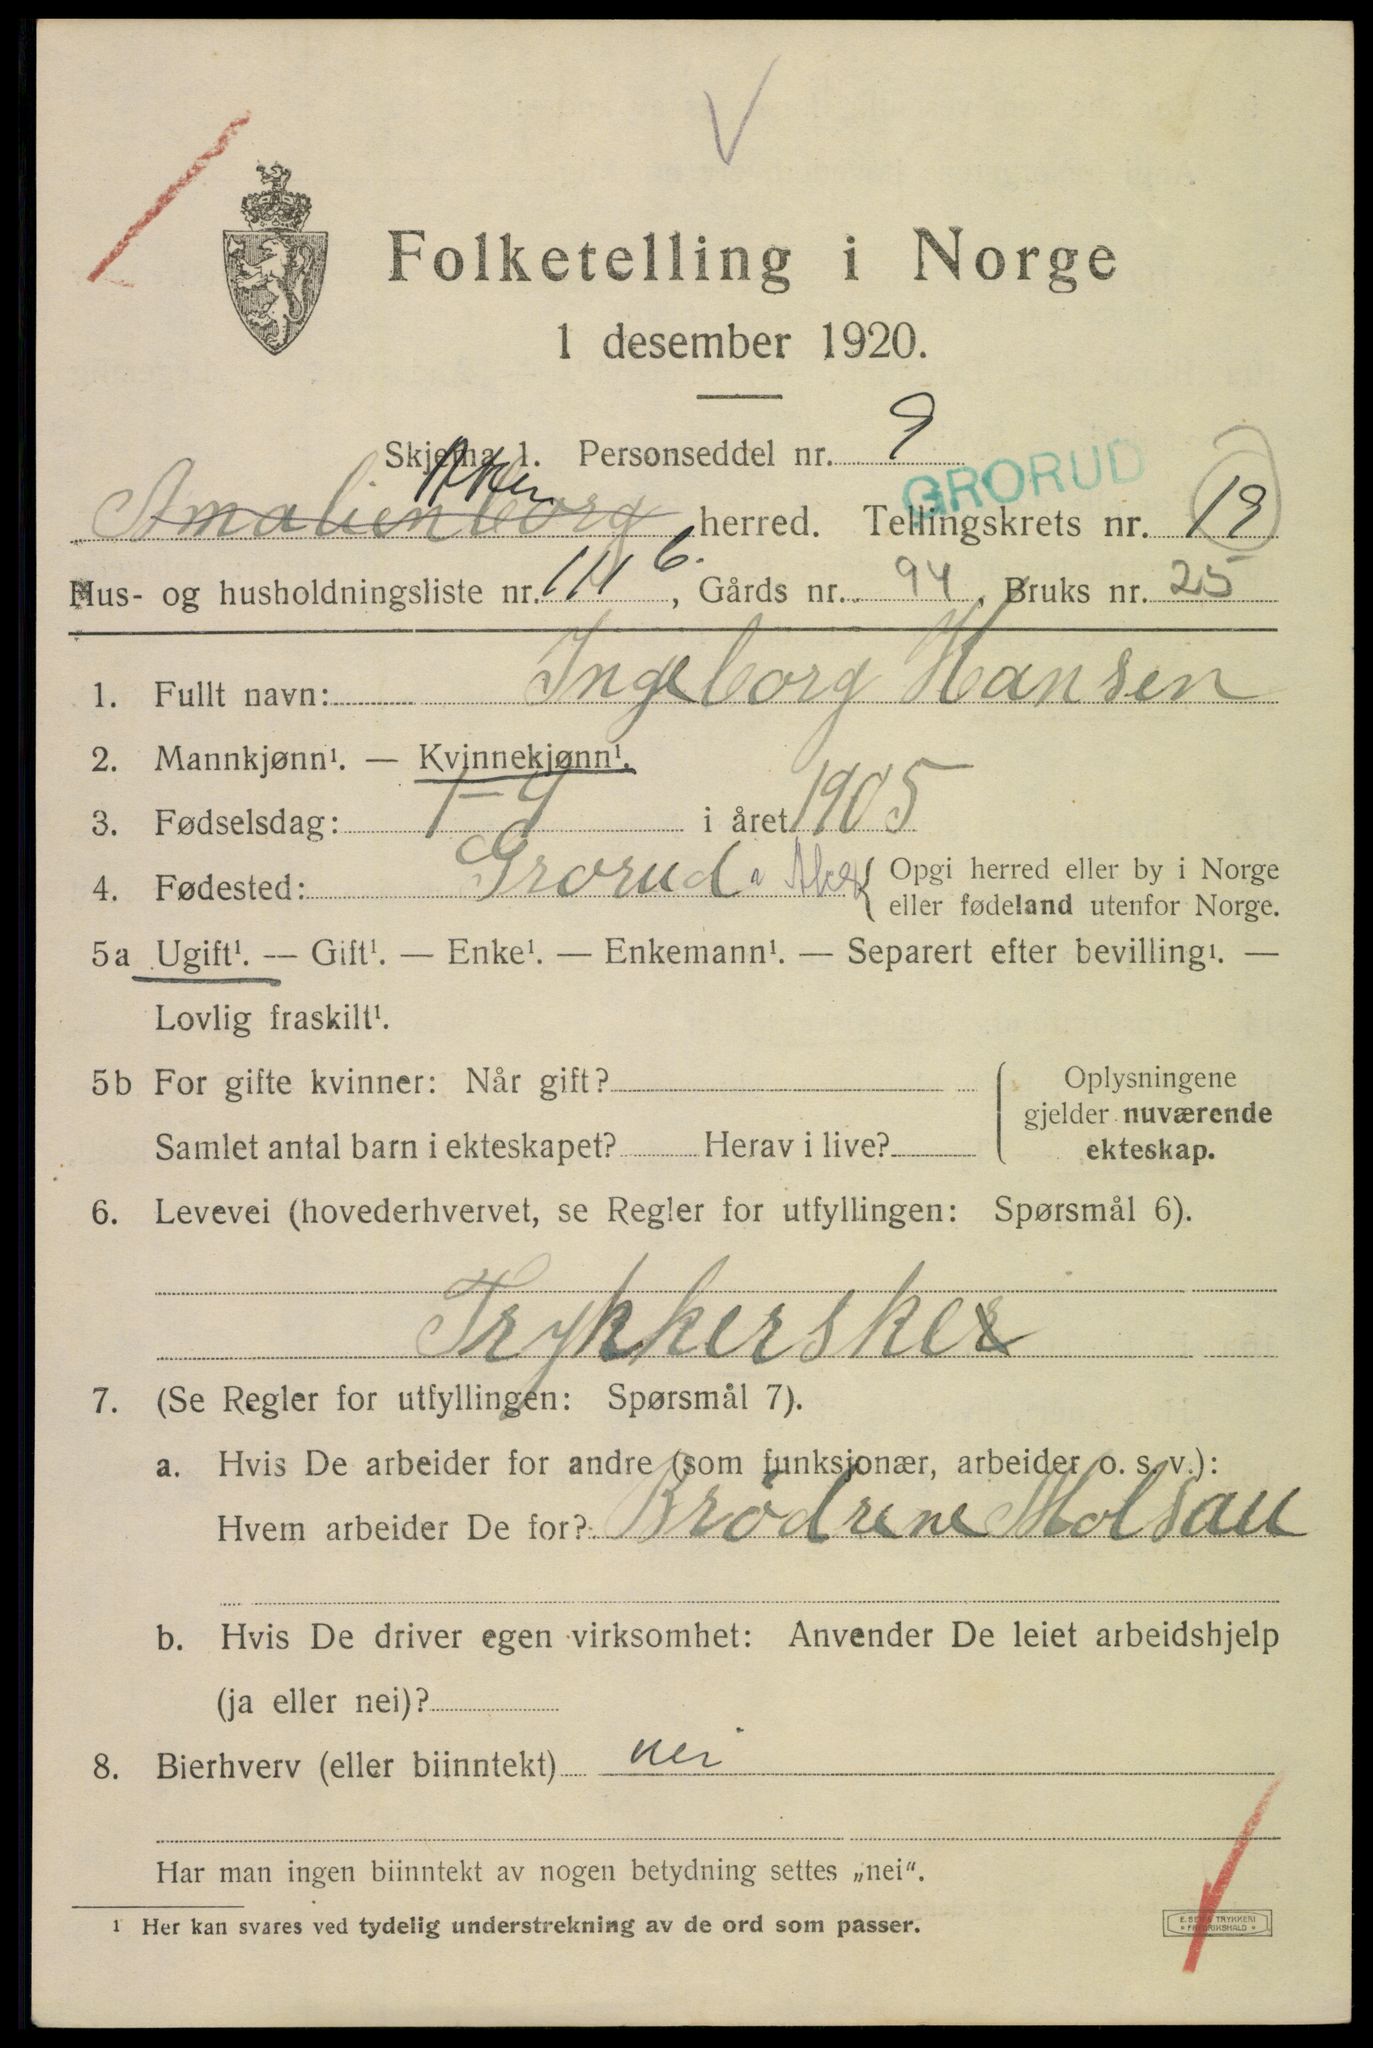 Folketelling i Norge
1 desember 1920.
Skjema 1. Personseddel nr. 9
GRORUD
Aker
Amalienborg herred. Tellingskrets nr. 19
Hus- og husholdningsliste nr. 111 b., Gårds nr. 94, Bruks nr. 25
1. Fullt navn: Ingeborg Hansen
2. Mannkjønn¹. — Kvinnekjønn¹.
3. Fødselsdag: 1-9 i året 1905
4. Fødested: Grorud Aker { Opgi herred eller by i Norge
eller fødeland utenfor Norge.
5a Ugift¹. — Gift¹. — Enke¹. — Enkemann¹. — Separert efter bevilling¹. —
Lovlig fraskilt¹.
5b For gifte kvinner: Når gift?
Samlet antal barn i ekteskapet? Herav i live?
Oplysningene
gjelder nuværende
ekteskap.
6. Levevei (hovederhvervet, se Regler for utfyllingen: Spørsmål 6).
Trykkerske
7. (Se Regler for utfyllingen: Spørsmål 7).
a. Hvis De arbeider for andre (som funksjonær, arbeider o. s. v.):
Hvem arbeider De for? Brödrene Molsau
b. Hvis De driver egen virksomhet: Anvender De leiet arbeidshjelp
(ja eller nei)?
8. Bierhverv (eller biinntekt) nei
Har man ingen biinntekt av nogen betydning settes „nei“.
¹ Her kan svares ved tydelig understrekning av de ord som passer.
E. SEM'S TRYKKERI
FREDRIKSHALD